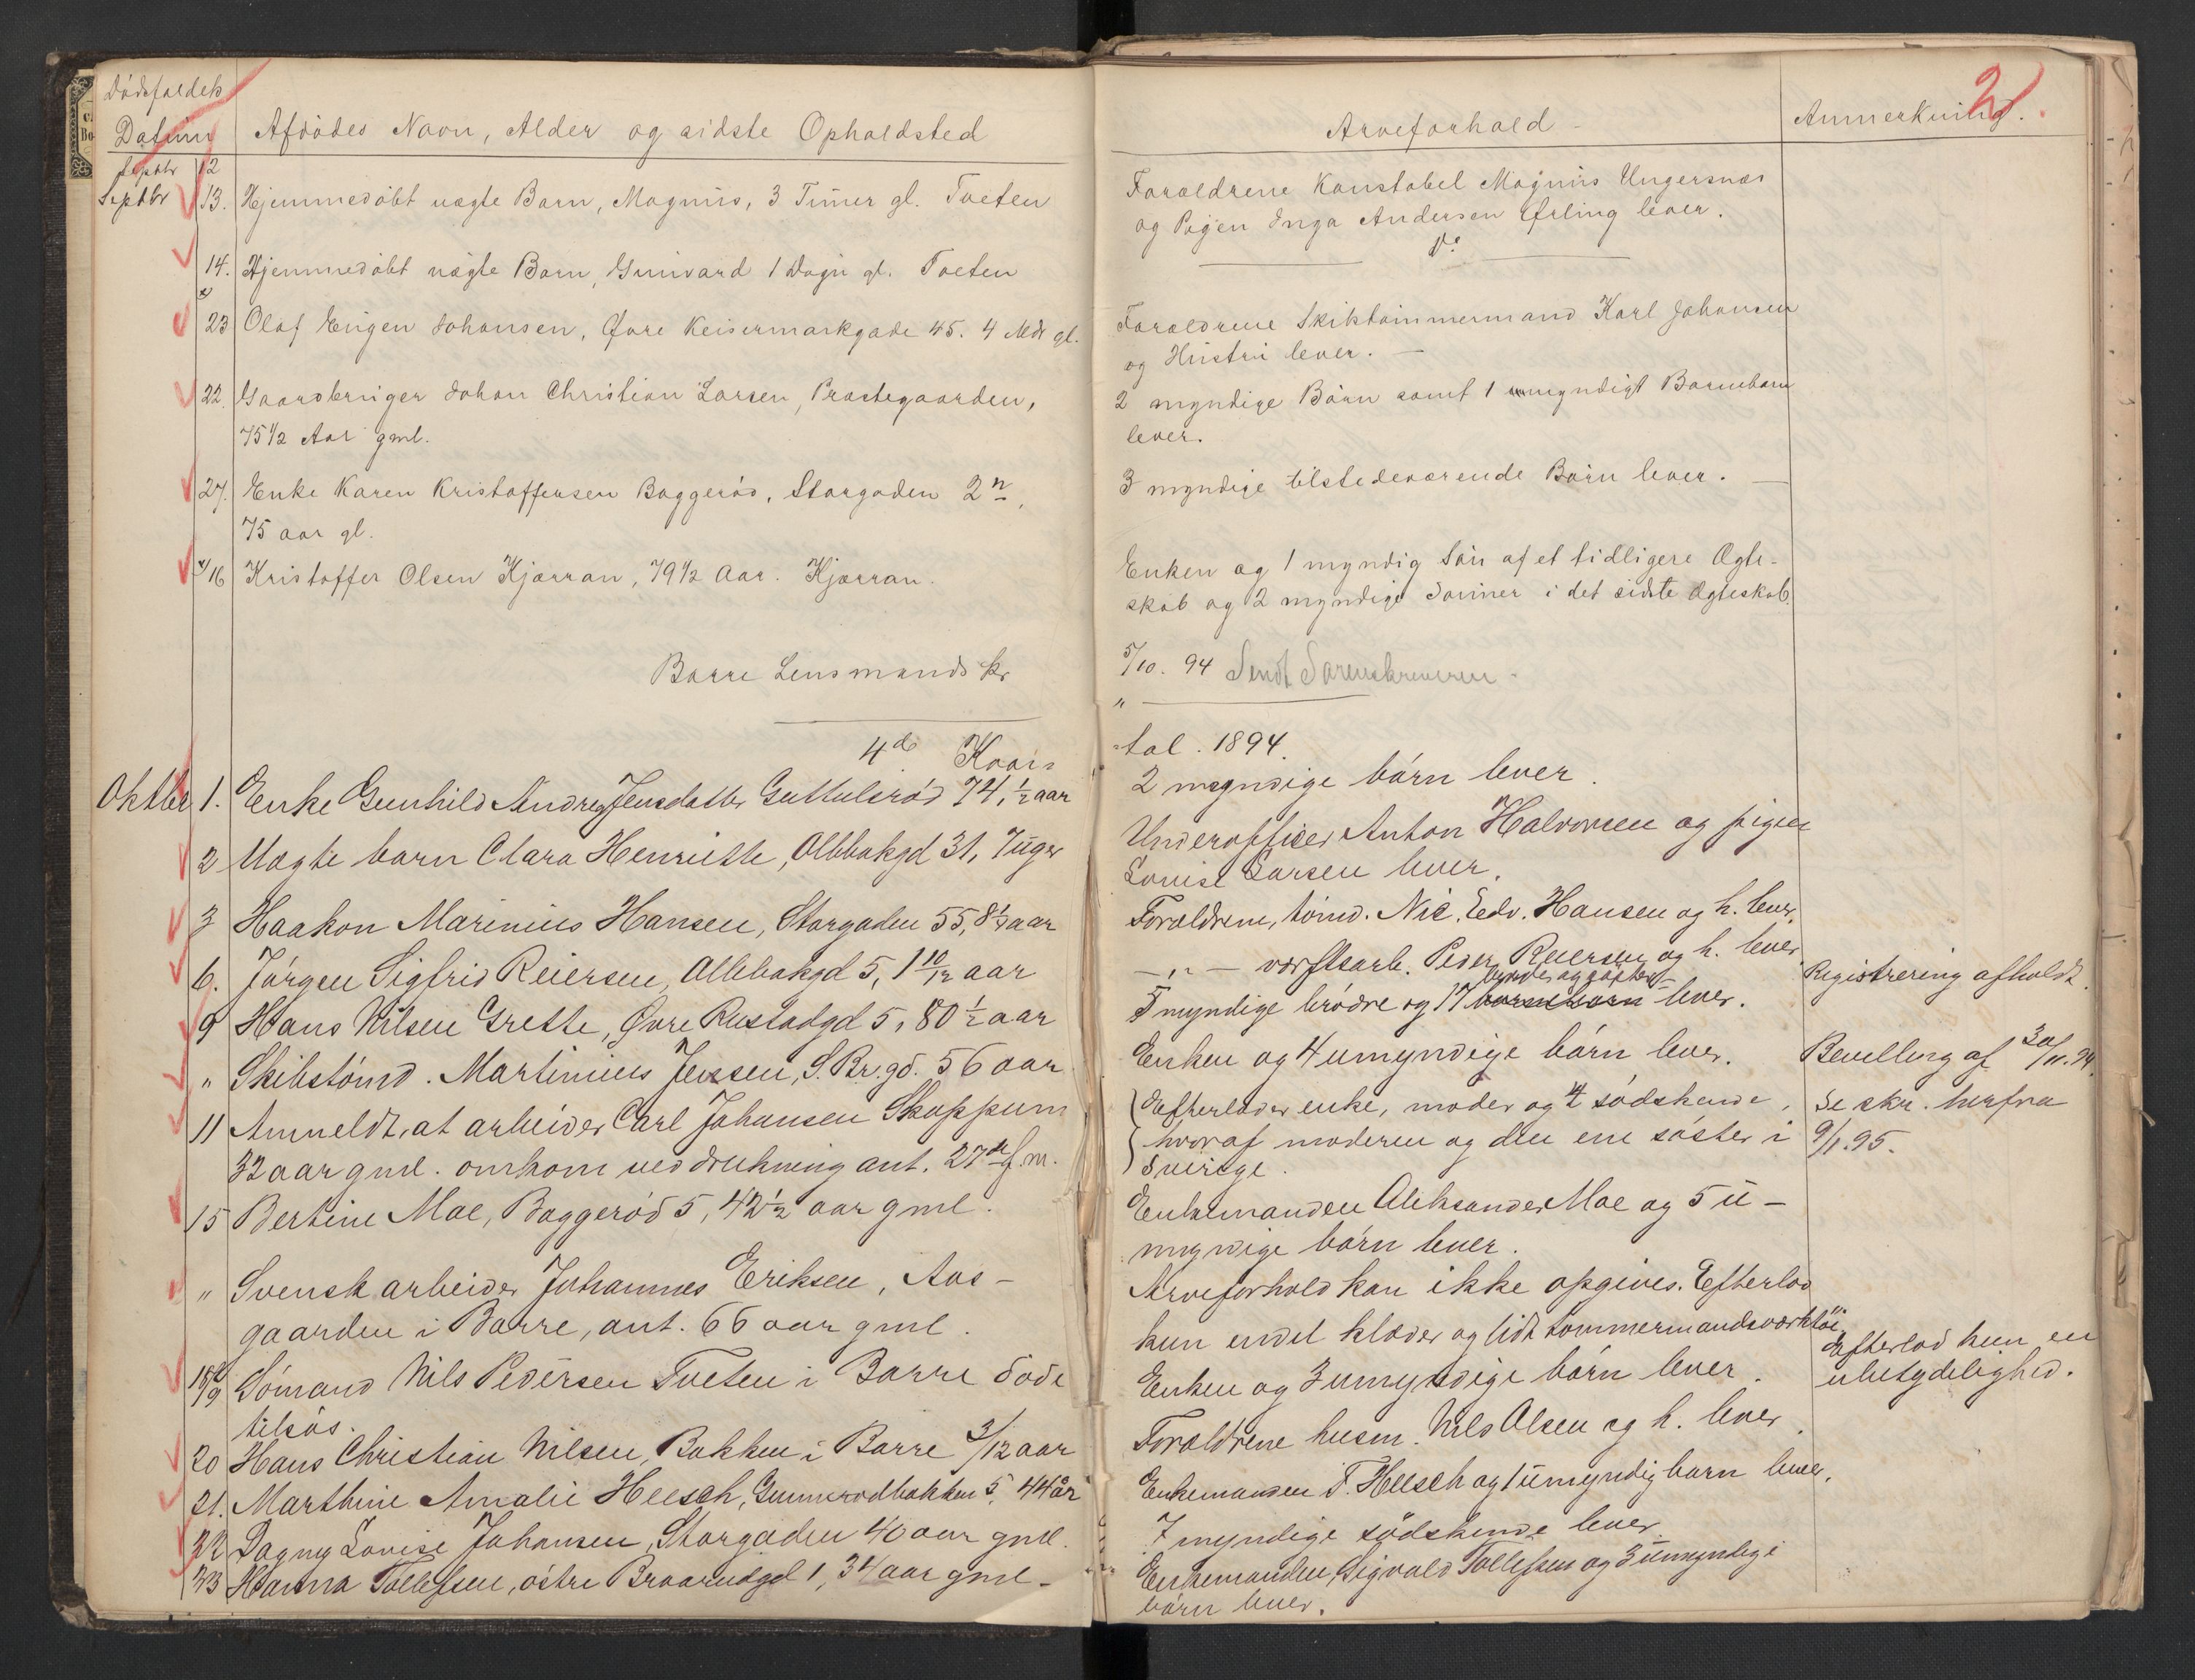 Dødsfaldets
Datum
Afdødes Navn, Alder og sidste Opholdsted
Septbr 12
Septbr 13. Hjemmedøbt uægte Barn, Magnus, 3 Timer gl. Tveten
14. Hjemmedøbt uægte Barn, Gunvard 1 Døgn gl. Tveten
23 Olaf Eugen Johansen, Øvre Keisermarkgade 45. 4 Mdr gl.
22. Gaardbruger Johan Christian Larsen, Præstegaarden,
75 1/2 Aar gml.
27. Enke Karen Kristoffersen Baggerød, Storgaden 2n,
75 aar gl.
16 Kristoffer Olsen Kjærran, 79 1/2 Aar. Kjærran.
Borre Lensmands kr
4de Kvar-
Oktbr 1. Enke Gunhild Andrea Jensdatter Guttulsrød 74, 1/2 aar
2 Uægte barn Clara Henriette, Ollebakgd 31, 7 uger
3 Haakon Marinius Hansen, Storgaden 55, 8 1/2 aar
6. Jørgen Sigfrid Reiersen, Ollebakgd 5, 1 10/12 aar
9 Hans Nilsen Grette, Øvre Rustadgd 5, 80 1/2 aar
" Skibstømd. Martinius Jensen, S. Br.gd. 56 aar
11 Anmeldt, at arbeider Carl Johansen Skoppum
32 aar gml. omkom ved drukning ant. 27de f.m.
15 Bertine Moe, Baggerød 5, 42 1/2 aar gml.
" Svensk arbeider Johannes Eriksen, Aas-
gaarden i Borre, ant. 66 aar gml.
18/9 Sømand Nils Pedersen Tveten i Borre døde
tilsøs.
20 Hans Christian Nilsen, Bakken i Borre 3/12 aar
21. Marthine Amalie Heesch, Gunnerødbakken 5, 44 år
22 Dagny Lovise Johansen, Storgaden 40 aar gml.
23 Hanna Tollefsen, østre Braarudgd 1, 34 aar gml.
2.
Arveforhold -
Anmerkning.
Forældrene Konstabel Magnus Ungersnæs
og Pigen Inga Andersen Efling lever.
Do
Forældrene Skibstømmermand Karl Johansen
og Hustru lever. -
2 myndige Børn samt 1 umyndigt Barnebarn
lever.
3 myndige tilstedeværende Børn lever. -
Enken og 1 myndig Søn af et tidligere Ægte-
skab og 2 myndige Sønner i det sidste Ægteskab.
5/10. 94 Sendt Sorenskriveren.
"
tal. 1894.
2 myndige børn lever.
Underofficer Anton Halvorsen og pigen
Lovise Larsen lever.
Forældrene, tømd. Nic. Edv. Hansen og h. lever.
-"- værftsarb. Peder Reiersen og h. lever
7 myndige brødre og 17 barnebarn lever.
Registrering afholdt.
Enken og 4 umyndige børn lever.
Bevilling af 30/11. 94.
Efterlader enke, moder og 4 sødskende,
hvoraf moderen og den ene søster i
Sverige.
Se skr. herfra
9/1. 95.
Enkemanden Aleksander Moe og 5 u-
myndige børn lever.
Arveforhold kan ikke opgives. Efterlod
kun endel klæder og lidt tømmermandsværktøi.
Enken og 3 umyndige børn lever.
Efterlod kun en
ubetydelighed.
Forældrene husm. Nils Olsen og h. lever.
Enkemanden F. Heesch og 1 umyndig barn lever.
7 myndige sødskende lever.
Enkemanden, Sigvald Tollefsen og 3 umyndige
børn lever.